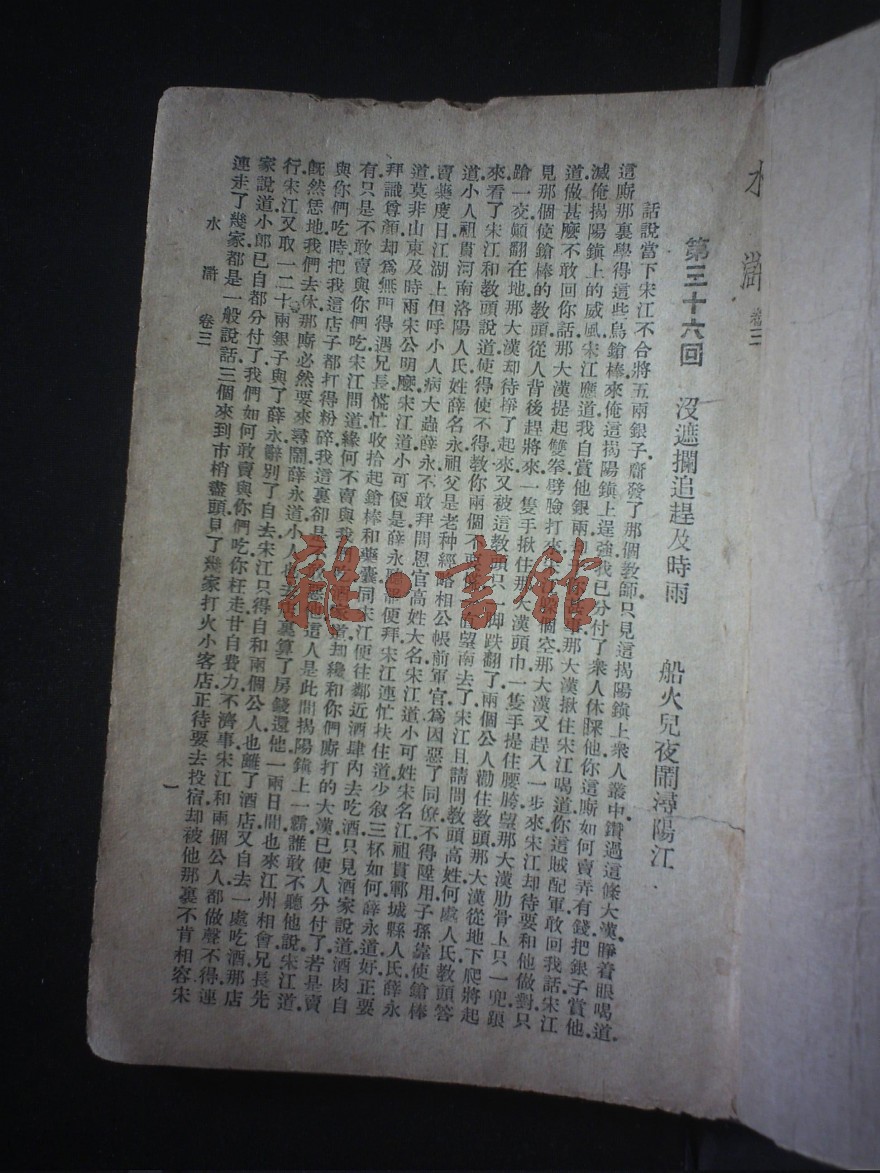 水滸 卷三
第三十六回 沒遮攔追趕及時雨 船火兒夜鬧潯陽江
話說當下宋江不合將五兩銀子齎發了那個教師只見這揭陽鎮上衆人叢中鑽過這條大漢睜着眼喝道
這廝那裏學得這些鳥鎗棒來俺這揭陽鎮上逞強我已分付了衆人休睬他你這廝如何賣弄有錢把銀子賞他
滅俺揭陽鎮上的威風宋江應道我自賞他銀兩那大漢揪住宋江喝道你這賊配軍敢回我話宋江
道做甚麼不敢回你話那大漢提起雙拳劈臉打來個空那大漢又趕入一步來宋江却待要和他做對只
見那個使鎗棒的教頭從人背後趕將來一隻手揪住那大漢頭巾一隻手提住腰胯望那大漢肋骨上只一兜踉
蹌一交顛翻在地那大漢却待掙了起來又被這教頭只一脚跌翻了兩個公人勸住教頭那大漢從地下爬將起
來看了宋江和教頭說道使得使不得教你兩個不要望南去了宋江且請問教頭高姓何處人氏教頭答
道小人祖貫河南洛陽人氏姓薛名永祖父是老种經略相公帳前軍官爲因惡了同僚不得陞用子孫靠使鎗棒
賣藥度日江湖上但呼小人病大蟲薛永不敢拜問恩官高姓大名宋江道小可姓宋名江祖貫鄆城縣人氏薛永
道莫非山東及時雨宋公明麼宋江道小可便是薛永聽便拜宋江連忙扶住道少敘三杯如何薛永道好正要
拜識尊顏却爲無門得遇兄長慌忙收拾起鎗棒和藥囊同宋江便往鄰近酒肆內去吃酒只見酒家說道酒肉自
有只是不敢賣與你們吃宋江問道緣何不賣與我們吃酒家道却纔和你們廝打的大漢已使人分付了若是賣
與你們吃時把我這店子都打得粉碎我這裏却是不敢惡他這人是此間揭陽鎮上一霸誰敢不聽他說宋江道
旣然恁地我們去休那廝必然要來尋鬧薛永道小人也去店裏算了房錢還他一兩日間也來江州相會兄長先
行宋江又取一二十兩銀子與了薛永辭別了自去宋江只得自和兩個公人也離了酒店又自去一處吃酒那店
家說道小郎已自都分付了我們如何敢賣與你們吃你枉走甘自費力不濟事宋江和兩個公人都做聲不得連
連走了幾家都是一般說話三個來到市梢盡頭見了幾家打火小客店正待要去投宿却被他那裏不肯相容宋
水滸 卷三
一
雜·書館